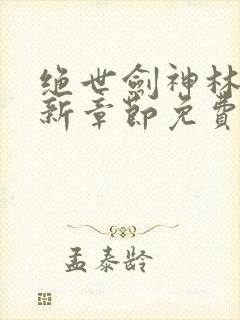 绝世劍神林
新章節免費
孟泰龄